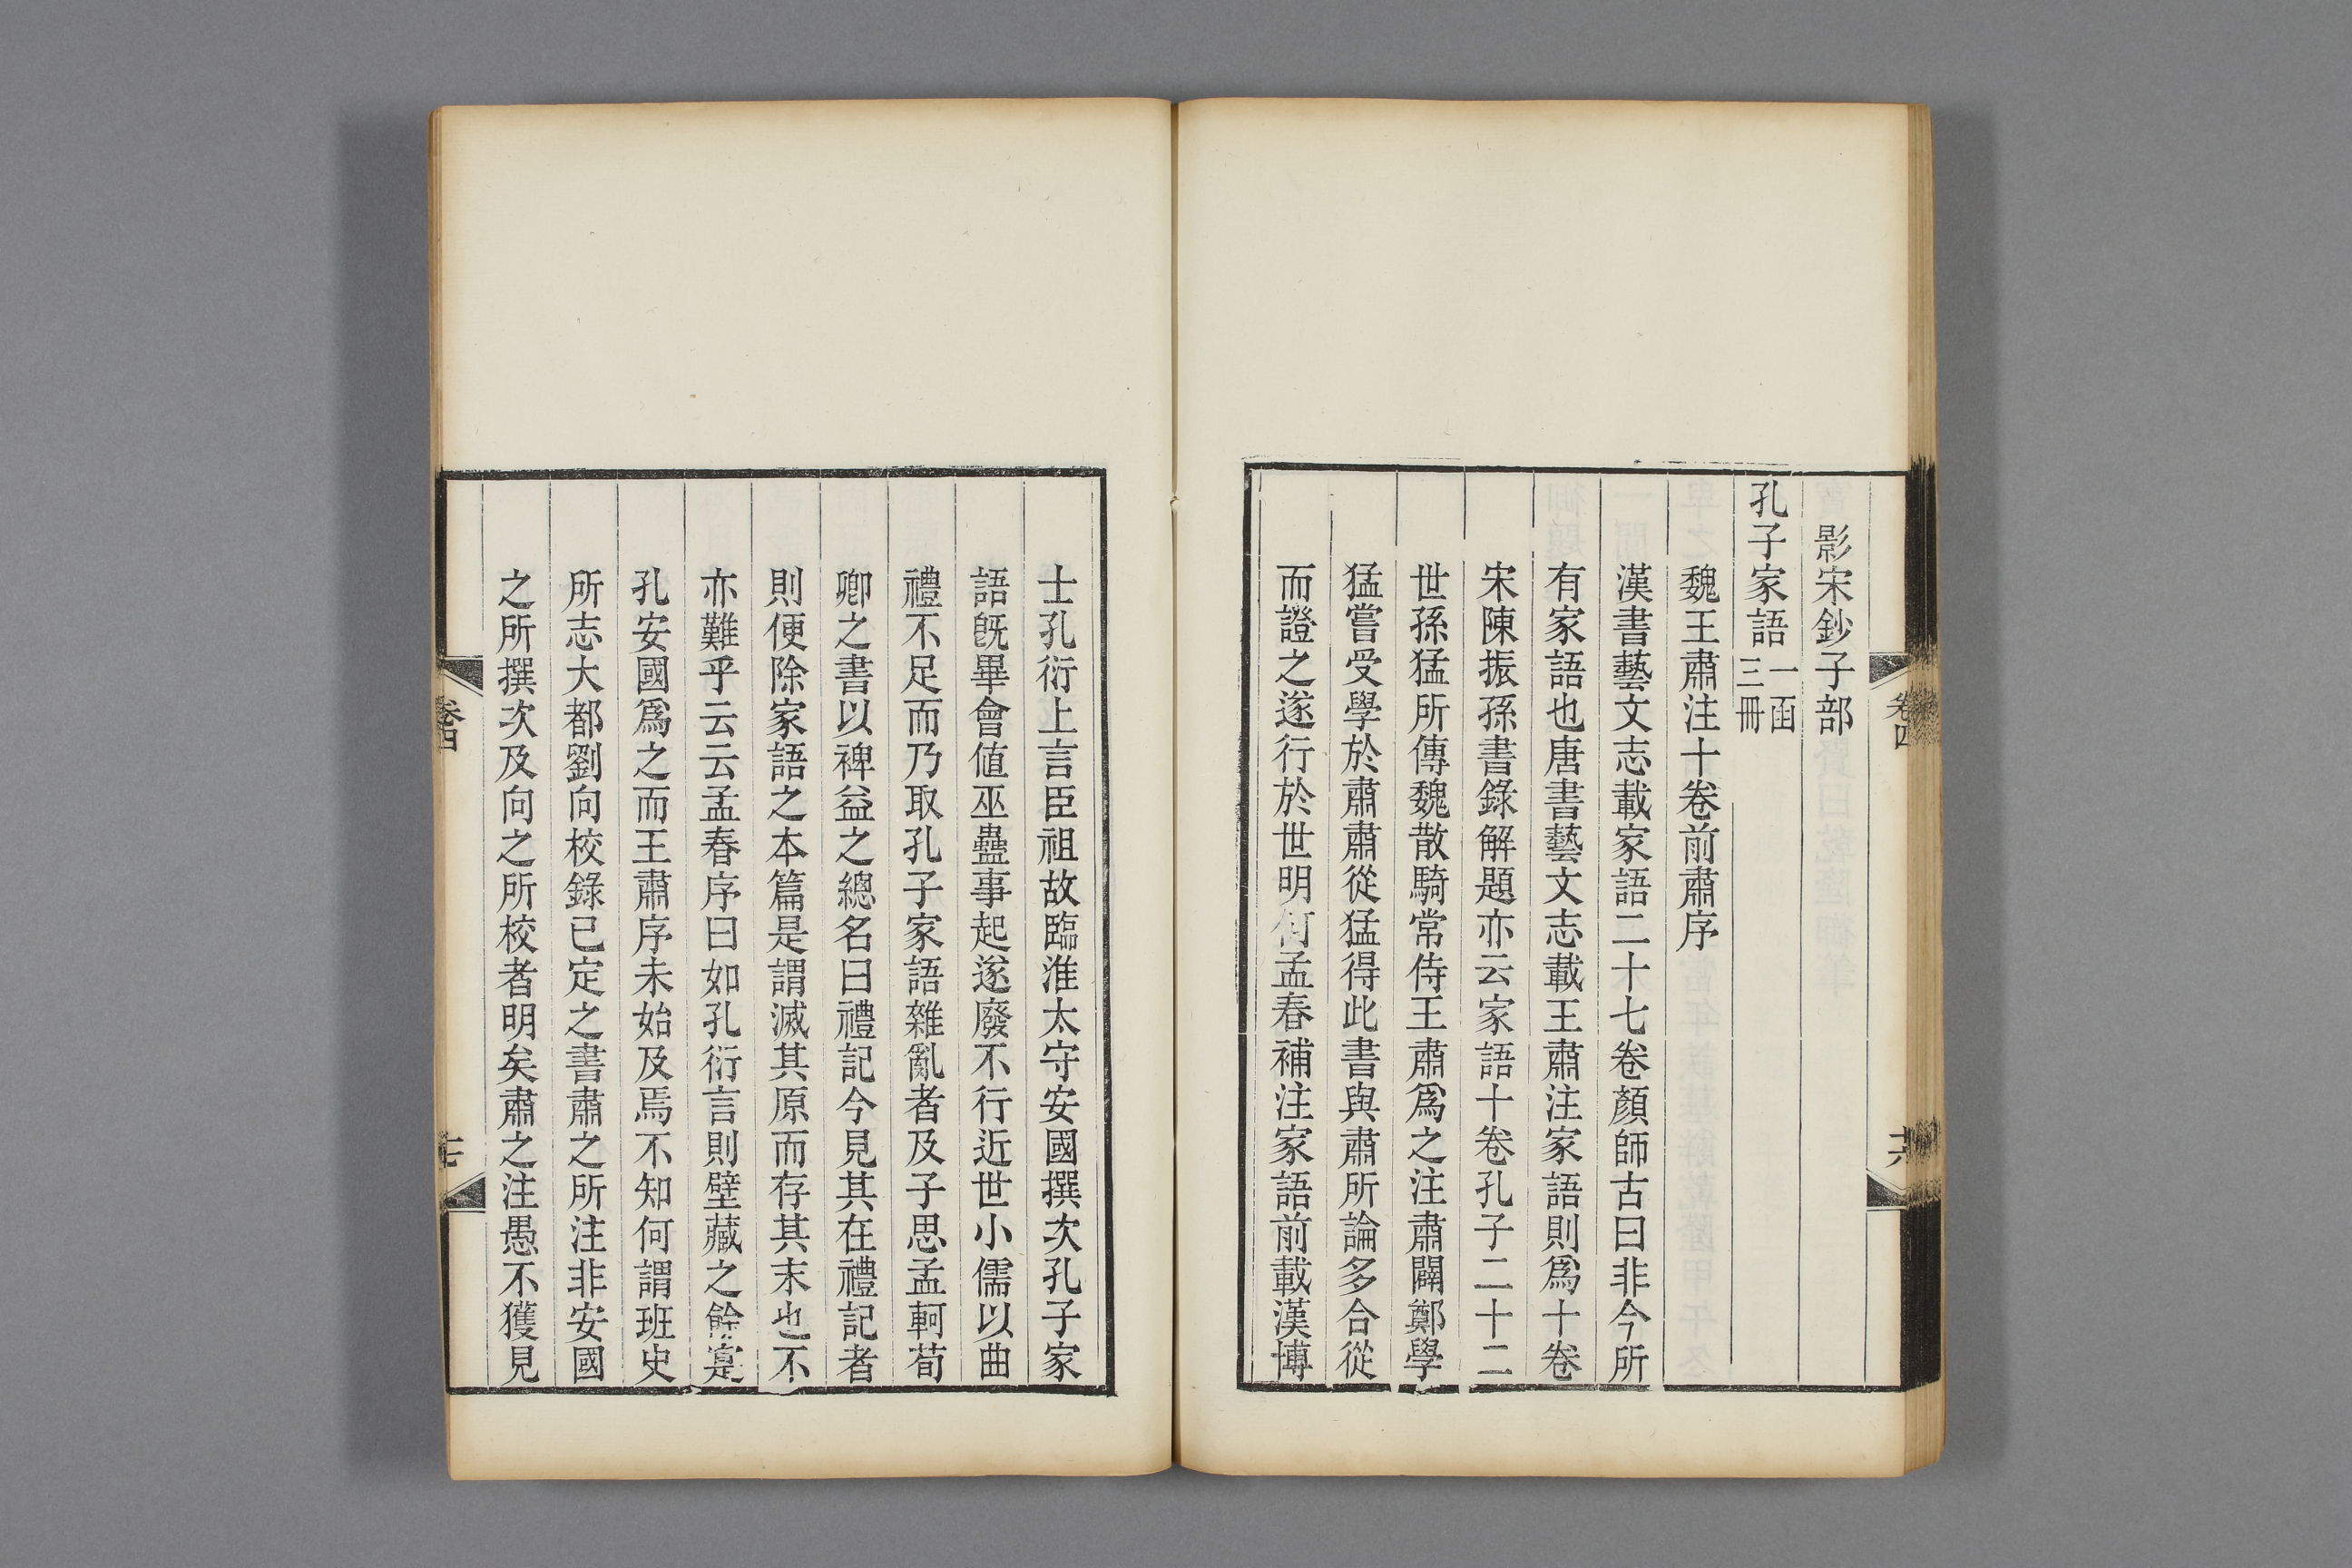 影宋鈔子部
孔子家語一函三冊
魏王肅注十卷前肅序
漢書藝文志載家語二十七卷顏師古曰非今所
有家語也唐書藝文志載王肅注家語則爲十卷
宋陳振孫書錄解題亦云家語十卷孔子二十二
世孫猛所傳魏散騎常侍王肅爲之注肅闢鄭學
猛嘗受學於肅肅從猛得此書與肅所論多合從
而證之遂行於世明何孟春補注家語前載漢博
卷四
十六
士孔衍上言臣祖故臨淮太守安國撰次孔子家
語旣畢會值巫蠱事起遂廢不行近世小儒以曲
禮不足而乃取孔子家語雜亂者及子思孟軻荀
卿之書以裨益之總名曰禮記今見其在禮記者
則便除家語之本篇是謂滅其原而存其末也不
亦難乎云云孟春序曰如孔衍言則壁藏之餘寔
孔安國爲之而王肅序未始及焉不知何謂班史
所志大都劉向校錄已定之書肅之所注非安國
之所撰次及向之所校者明矣肅之注愚不獲見
卷四
十七